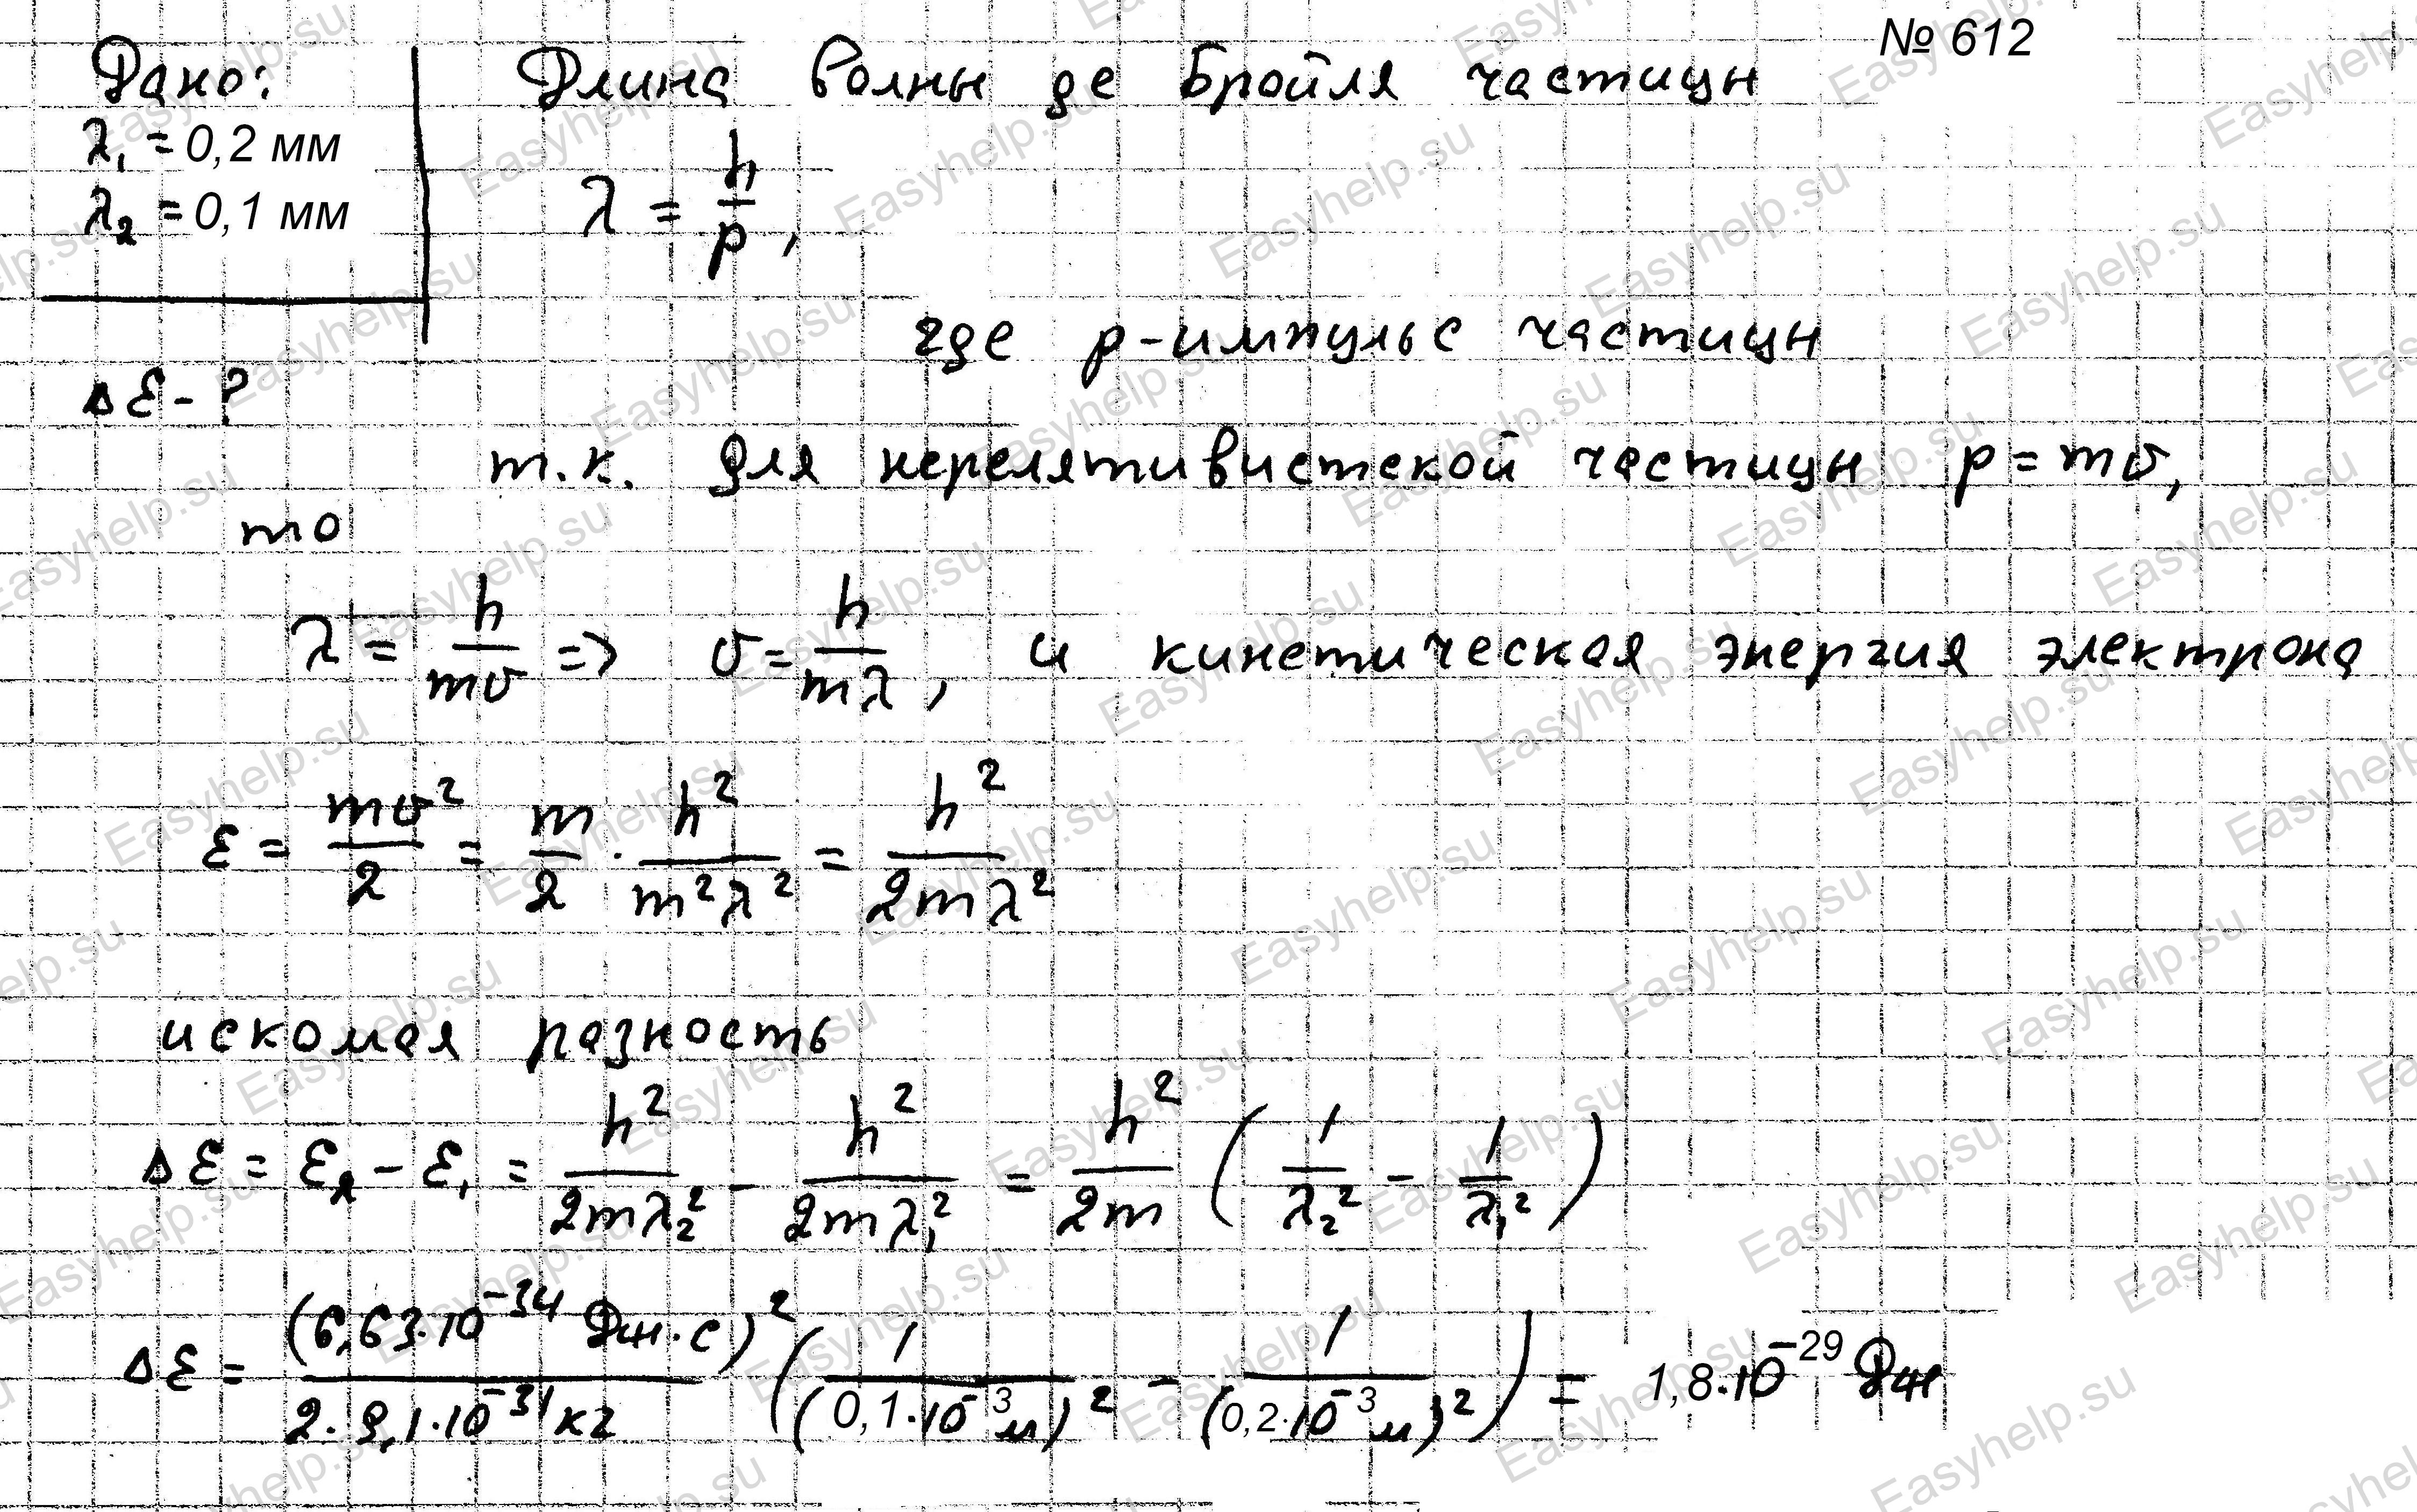 № 612
Дано:
λ₁ = 0,2 мм
λ₂ = 0,1 мм
Δε - ?
Длина волны де Бройля частицы
λ = h/p ,
где p - импульс частицы
т.к. для нерелятивистской частицы p = mυ,
то
λ = h/(mυ) => υ = h/(mλ) , и кинетическая энергия электрона
ε = mυ²/2 = m/2 · h²/(m²λ²) = h²/(2mλ²)
искомая разность
Δε = ε₂ - ε₁ = h²/(2mλ₂²) - h²/(2mλ₁²) = h²/(2m) (1/λ₂² - 1/λ₁²)
Δε = (6,63·10⁻³⁴ Дж·с)²/(2·9,1·10⁻³¹ кг) (1/(0,1·10⁻³ м)² - 1/(0,2·10⁻³ м)²) = 1,8·10⁻²⁹ Дж
Easyhelp.su